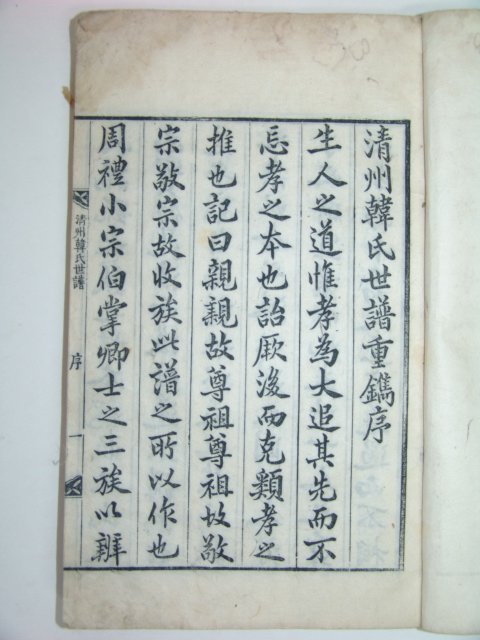 清州韓氏世譜重鐫序
生人之道惟孝為大追其先而不
忘孝之本也詒厥後而克類孝之
推也記曰親親故尊祖尊祖故敬
宗敬宗故收族此譜之所以作也
周禮小宗伯掌卿士之三族以辨
清州韓氏世譜
序
一